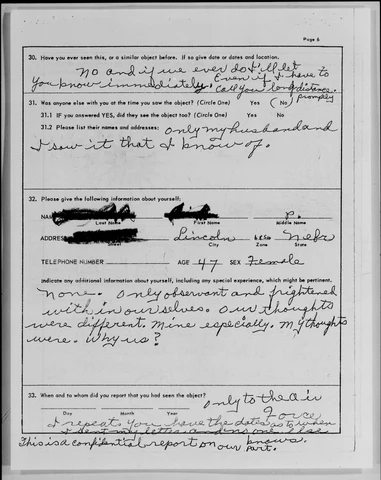 Page 6
30. Have you ever seen this, or a similar object before. If so give date or dates and location.
No and if we ever do I'll let
you know immediately. Even if I have to
call you long distance.
promply
31. Was anyone else with you at the time you saw the object? (Circle One) Yes (No)
31.1 IF you answered YES, did they see the object too? (Circle One) Yes No
31.2 Please list their names and addresses: only my husband and
I saw it that I know of.
32. Please give the following information about yourself:
NAME P.
Last Name First Name Middle Name
ADDRESS Lincoln Nebr
Street City Zone State
TELEPHONE NUMBER AGE 47 SEX Female
Indicate any additional information about yourself, including any special experience, which might be pertinent.
None. Only observant and frightened
with in ourselves. Our thoughts
were different. Mine especially. My thoughts
were. Why us?
33. When and to whom did you report that you had seen the object? only to the Air
Force
Day Month Year
I repeats you have the dates as to when
I sent my letter and no one else
knows.
This is a confidential report on our part.